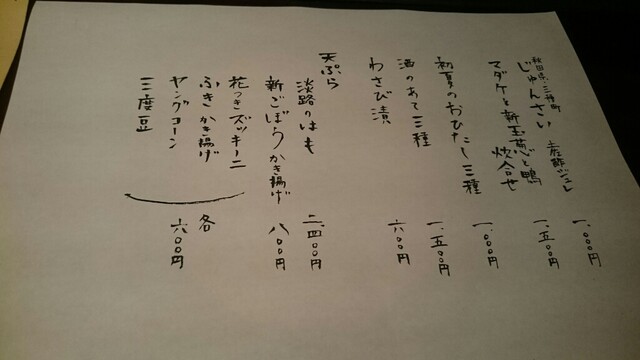 秋田県・三種町
じゅんさい 土佐酢ジュレ 一、〇〇〇円
マダケと新玉葱と鴨 炊合せ 一、五〇〇円
初夏のおひたし三種 一、〇〇〇円
酒のあて三種 一、五〇〇円
わさび漬 六〇〇円
天ぷら
淡路のはも 二、四〇〇円
新ごぼうかき揚げ 八〇〇円
花つきズッキーニ
ふきかき揚げ 各
ヤングコーン 六〇〇円
三度豆